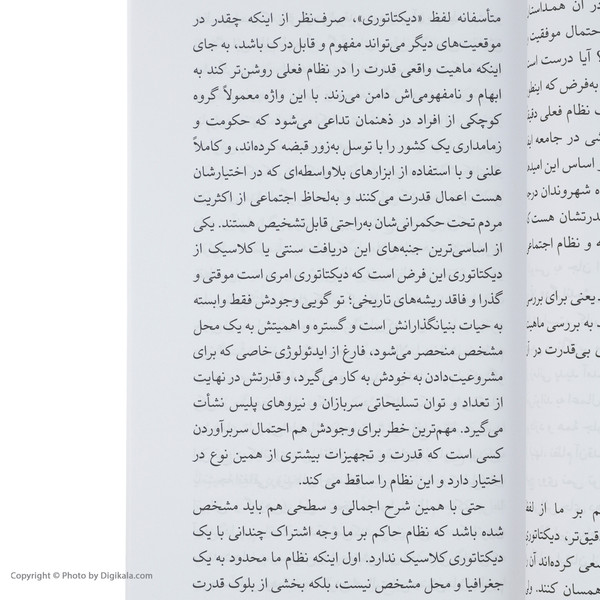 متأسفانه لفظ «دیکتاتوری»، صرف‌نظر از اینکه چقدر در
موقعیت‌های دیگر می‌تواند مفهوم و قابل‌درک باشد، به جای
اینکه ماهیت واقعی قدرت را در نظام فعلی روشن‌تر کند به
ابهام و نامفهومی‌اش دامن می‌زند. با این واژه معمولاً گروه
کوچکی از افراد در ذهنمان تداعی می‌شود که حکومت و
زمامداری یک کشور را با توسل به‌زور قبضه کرده‌اند، و کاملاً
علنی و با استفاده از ابزارهای بلاواسطه‌ای که در اختیارشان
هست اعمال قدرت می‌کنند و به‌لحاظ اجتماعی از اکثریت
مردم تحت حکمرانی‌شان به‌راحتی قابل‌تشخیص هستند. یکی
از اساسی‌ترین جنبه‌های این دریافت سنتی یا کلاسیک از
دیکتاتوری این فرض است که دیکتاتوری امری است موقتی و
گذرا و فاقد ریشه‌های تاریخی؛ تو گویی وجودش فقط وابسته
به حیات بنیانگذارانش است و گستره و اهمیتش به یک محل
مشخص منحصر می‌شود، فارغ از ایدئولوژی خاصی که برای
مشروعیت‌دادن به خودش به کار می‌گیرد، و قدرتش در نهایت
از تعداد و توان تسلیحاتی سربازان و نیروهای پلیس نشأت
می‌گیرد. مهم‌ترین خطر برای وجودش هم احتمال سربرآوردن
کسی است که قدرت و تجهیزات بیشتری از همین نوع در
اختیار دارد و این نظام را ساقط می کند.
حتی با همین شرح اجمالی و سطحی هم باید مشخص
شده باشد که نظام حاکم بر ما وجه اشتراک چندانی با یک
دیکتاتوری کلاسیک ندارد. اول اینکه نظام ما محدود به یک
جغرافیا و محل مشخص نیست، بلکه بخشی از بلوک قدرت
Copyright © Photo by Digikala.com